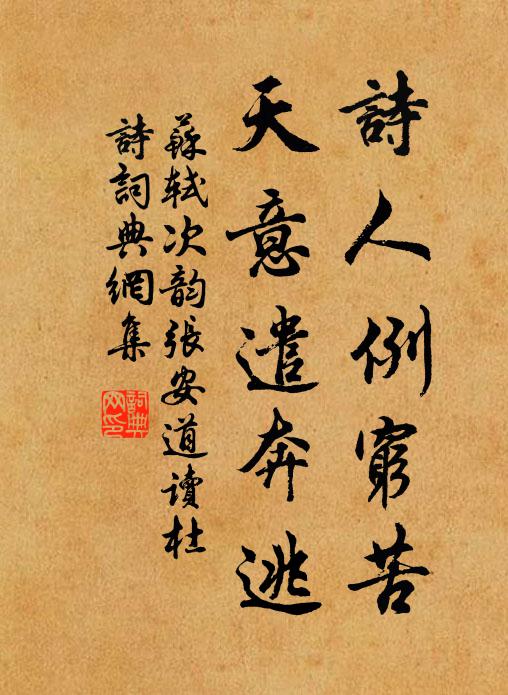 詩人例窮苦
天意遣奔逃
蘇軾次韵張安道讀杜
詩詞典網集
詞典
网印